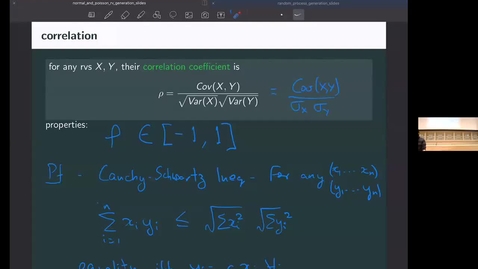 normal_and_poisson_rv_generation_slides
correlation
for any rvs X, Y, their correlation coefficient is
ρ = Cov(X, Y) / √Var(X)√Var(Y) = Cov(X,Y) / σx σy
properties: ρ ∈ [-1, 1]
Pf - Cauchy-Schwartz Ineq - For any (x₁ ... xₙ)
(y₁ ... yₙ)
n
Σ xᵢ yᵢ ≤ √Σxᵢ² √Σyᵢ²
i=1